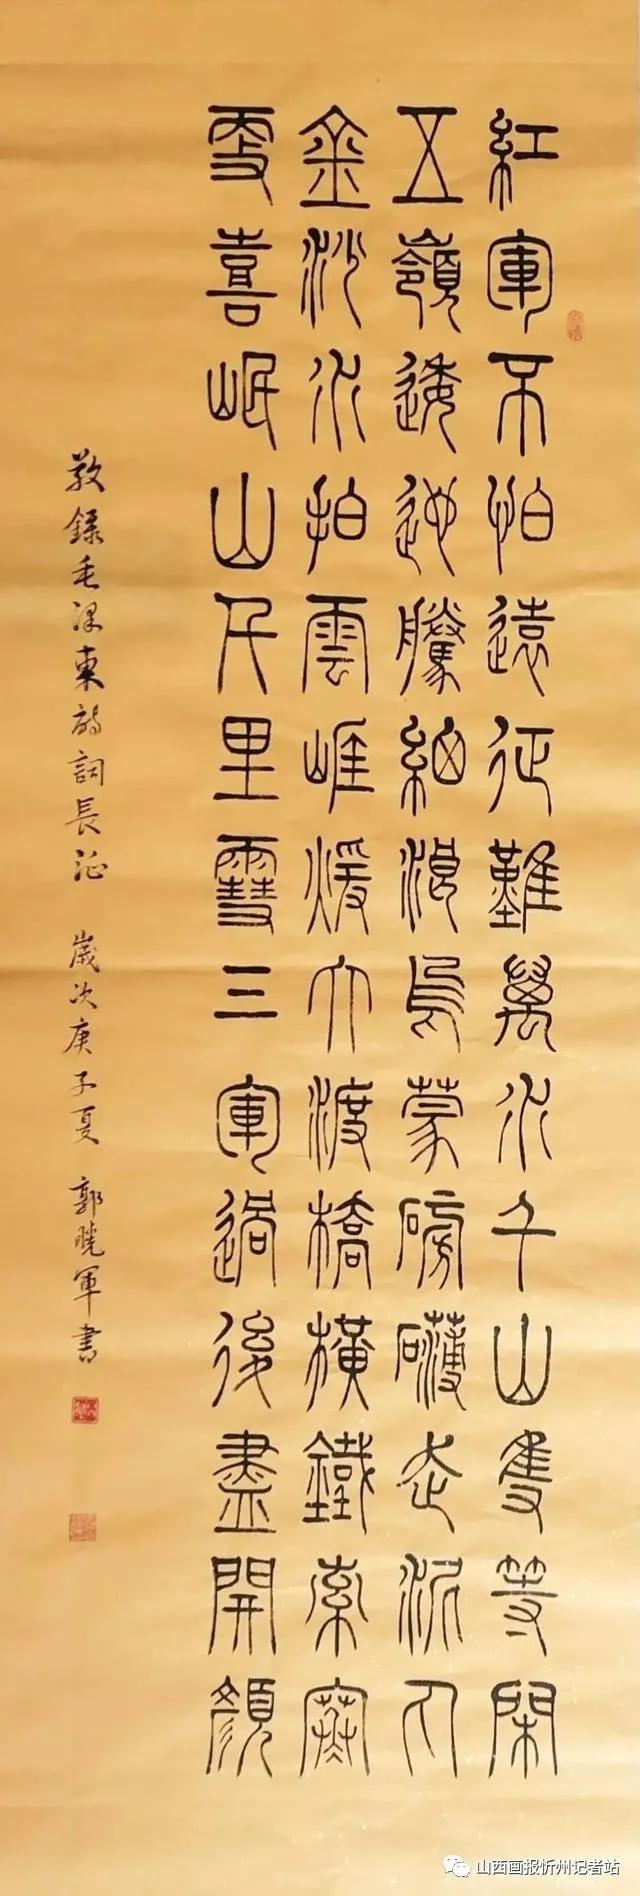 紅軍不怕遠征難萬水千山隻等閑
五嶺逶迤騰細浪烏蒙磅礴走泥丸
金沙水拍雲崖暖大渡橋橫鐵索寒
更喜岷山千里雪三軍過後盡開顏
敬錄毛澤東詩詞長征 歲次庚子夏 郭曉軍書
山西画报忻州记者站